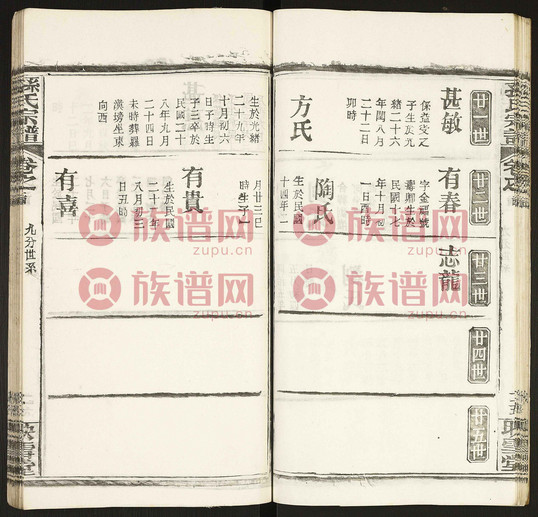 孫氏宗譜
卷之
廿一世
廿二世
廿三世
廿四世
廿五世
甚敏
係啟文之
子生於光
緒二十六
年閏八月
二十二日
卯時
方氏
生於光緒
二十九年
十月初六
日子時生
子三卒於
民國三十
八年九月
二十四日
未時葬羅
漢塝坐東
向西
有春
字金福號
壽卿生於
民國二十七
年十月初
一日酉時
陶氏
生於民國
十四年二
月廿三巳
時生子一
有貴
生於民國
二十一年
八月初三
日丑時
有喜
志龍
九分世系
映雪堂
族谱网
zupu.cn
族谱网
zupu.cn
族谱网
zupu.cn
族谱网
zupu.cn